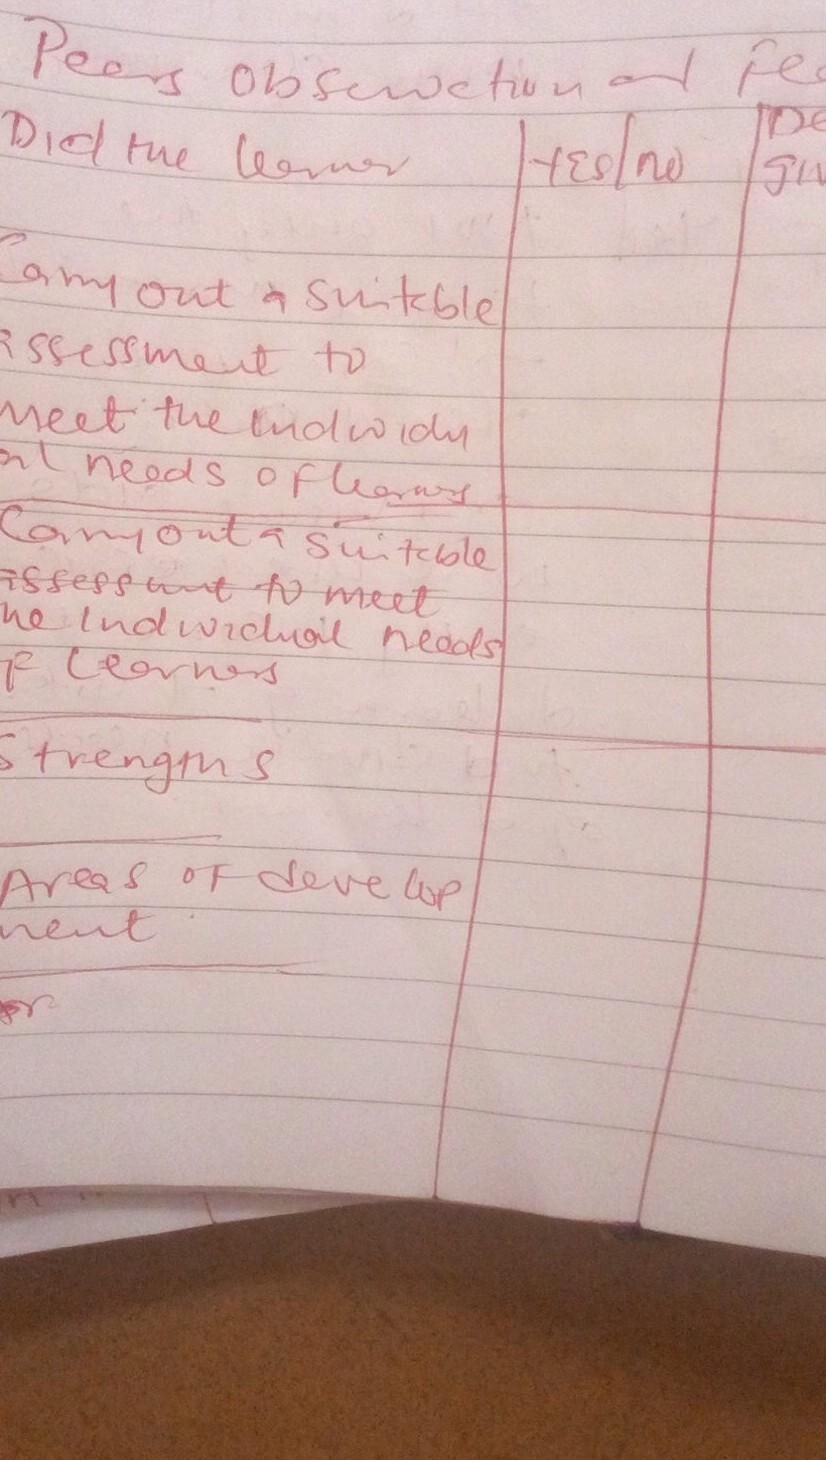 Peers observation and Fee
Did the learner
YES/no
De
giv
Carry out a suitable
assessment to
meet the individu
al needs of learners
Carry out a suitable
assessment to meet
he individual needs
of learners
Strengths
Areas of develop
ment
or